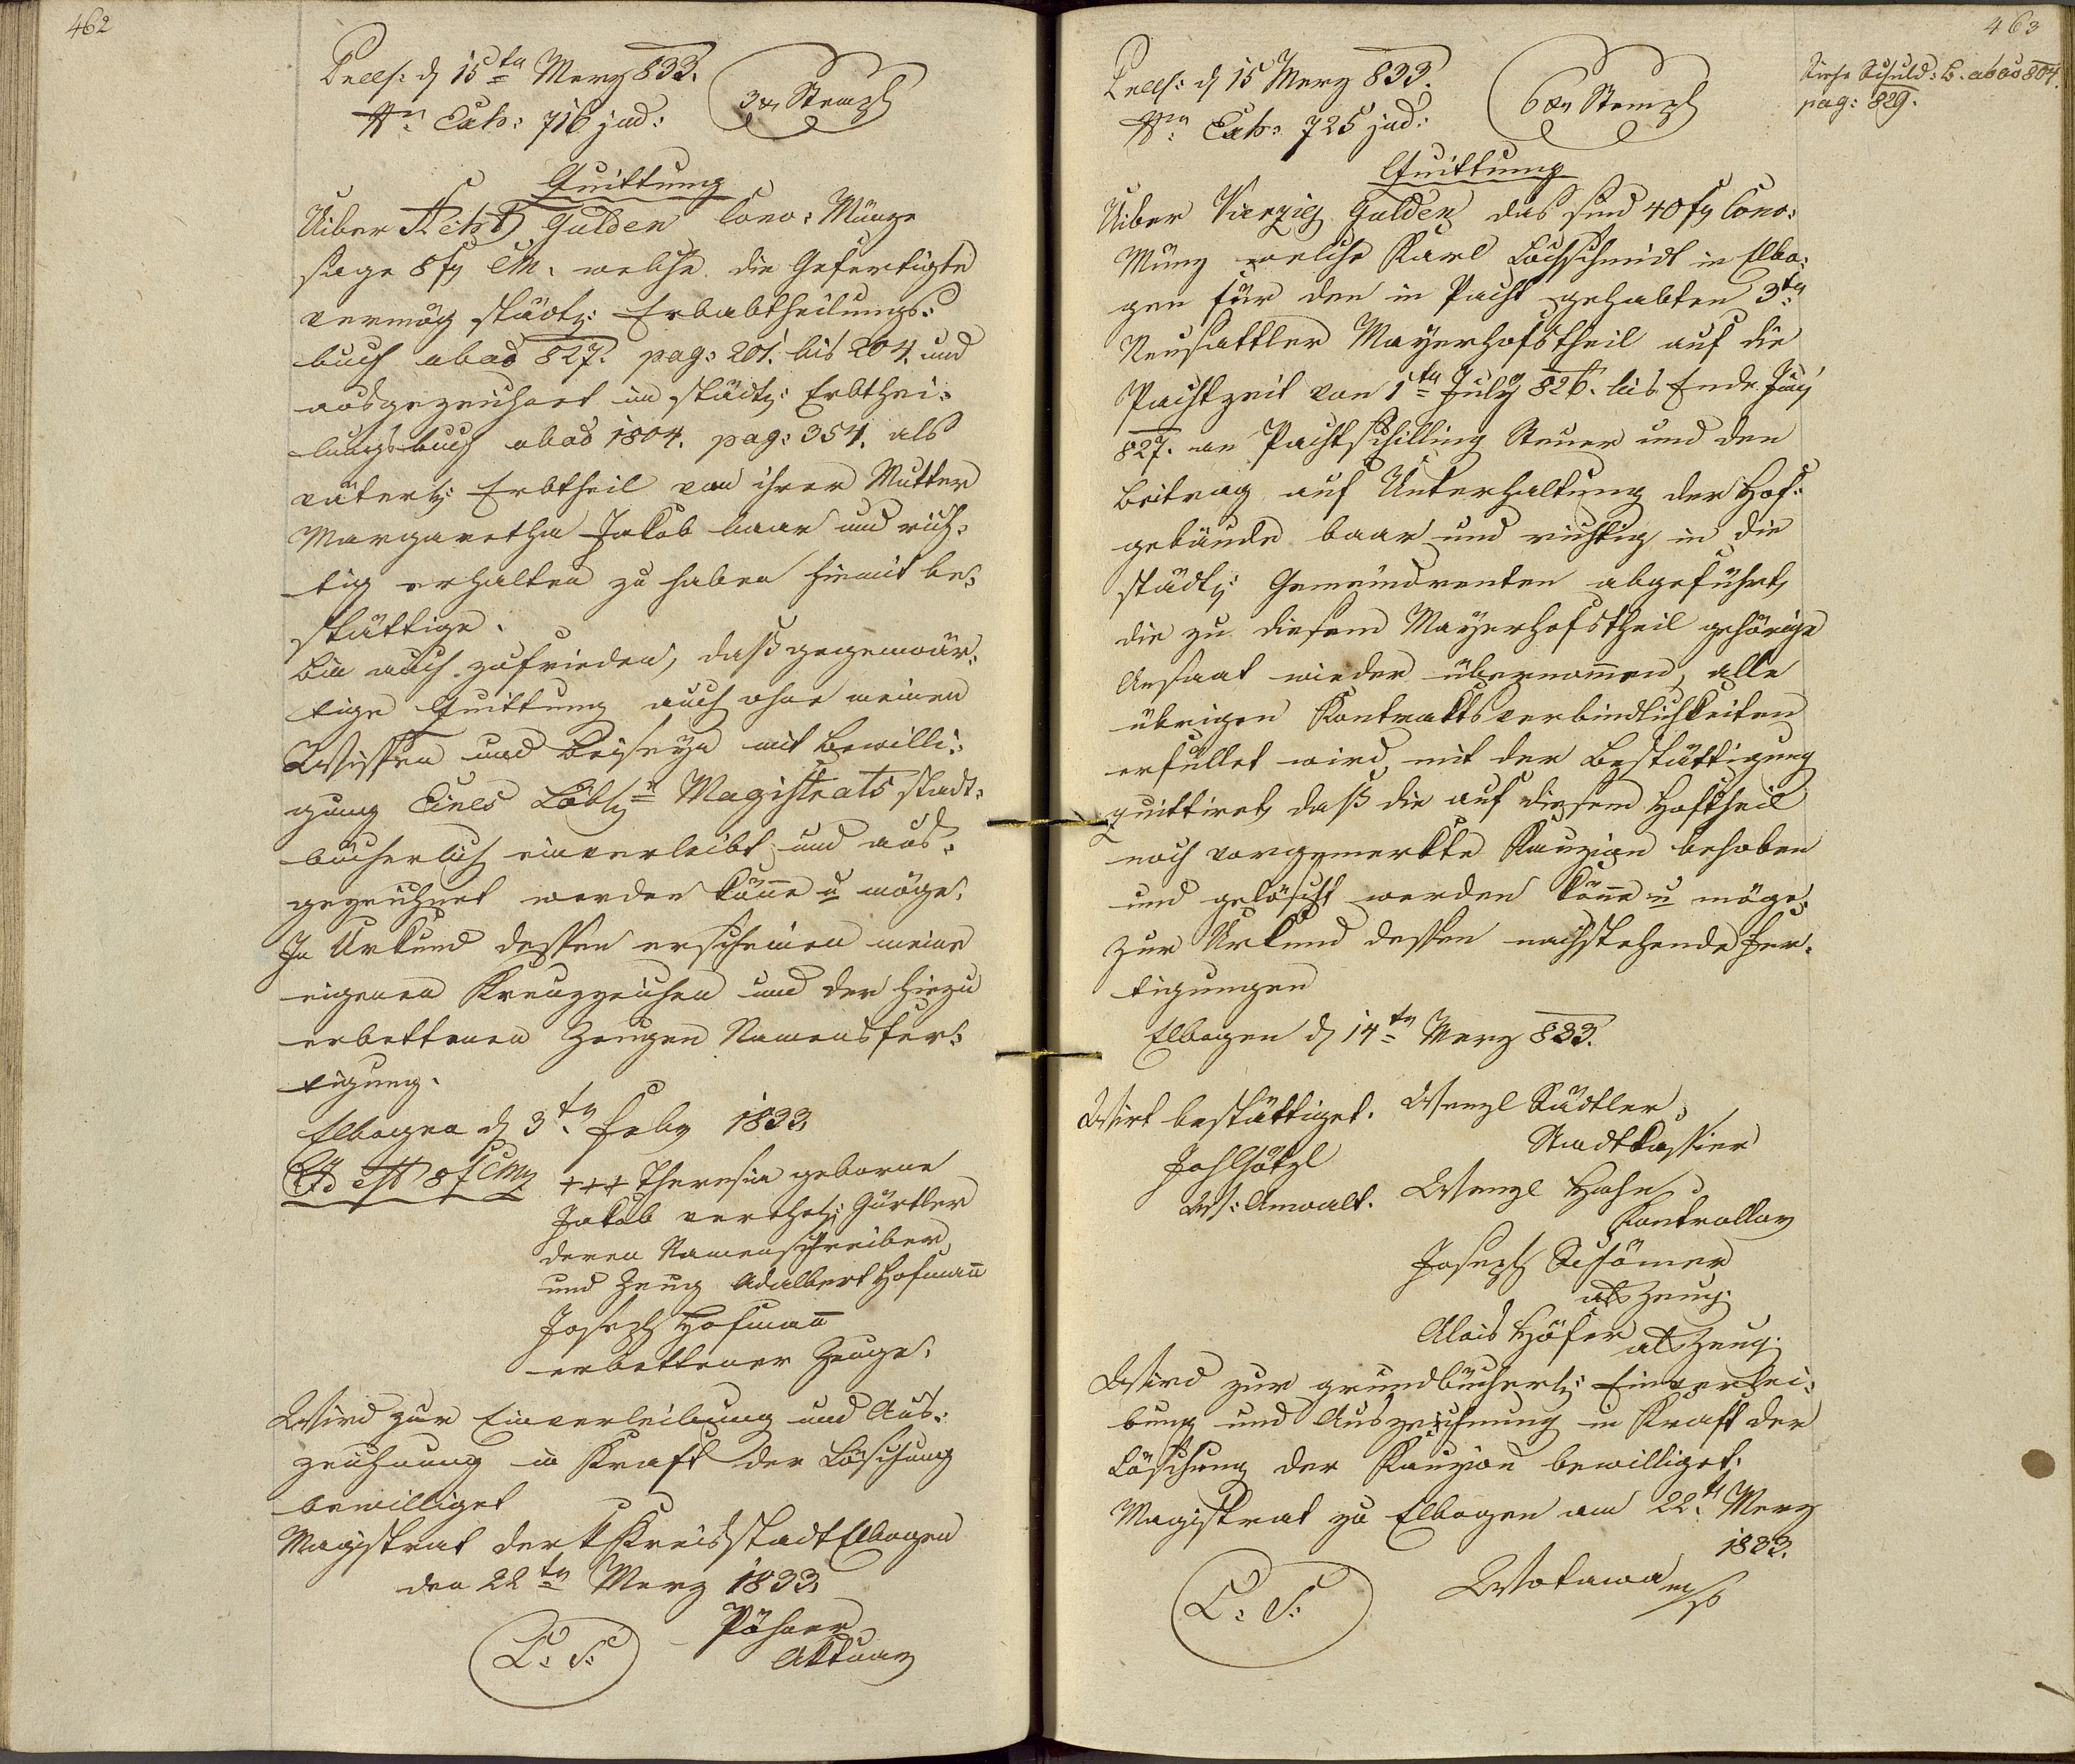 462
Præs: d 15ten Merz 833.
Nr. Exh: 716 jud:
3 xr Stempl
Quittung
Uiber Acht Gulden Conv: Münze
sage 8 f CM. welche die Gefertigte
vermög städt: Erbabtheilungs:
buch abao 827. pag: 201. bis 204. und
ausgezeichnet im städt: Erbthei:
lungsbuch abao 1804. pag: 354. als
väterl: Erbtheil von ihrer Mutter
Margaretha Jakob baar und rich:
tig erhalten zu haben hiemit be:
stättige.
Bin auch zufrieden, daß gegenwär:
tige Quittung auch ohne meinen
Wissen und Beiseyn mit Bewilli:
gung Eines Löbl: Magistrats stadt:
bücherlich einverleibt und aus:
gezeichnet werden könne u möge.
In Urkund dessen erscheinen meine
eigenen Kreuzzeichen und der hiezu
erbettenen Zeugen Namensfer:
tigung.
Elbogen d 3ten Feby 1833.
Id est 8 f CMz
+++ Theresia geborne
Jakob verehel: Gürtler
deren Namenschreiber
und Zeug Adalbert Hofmann
Joseph Hofmann
erbettener Zeuge.
Wird zur Einverleibung und Aus:
zeichnung in Kraft der Löschung
bewilliget
Magistrat der k Kreisstadt Elbogen
den 22ten Merz 1833.
L: S:
Pöhner
Aktuar
463
Siehe Schuld: B. abao 804.
pag: 829.
Præs: d 15 Merz 833.
Nrn. Exh: 725 jud:
6 xr Stempl
Quittung
Uiber Vierzig Gulden das sind 40 f Conv:
Münz welche Karl Lochschmidt in Elbo:
gen für den in Pacht gehabten 3ten
Neusattler Mayerhofstheil auf die
Pachtzeit von 1ten July 826. bis Ende Juny
827. an Pachtschilling Steuer und den
Beitrag auf Unterhaltung der Hof:
gebäude baar und richtig in die
städt: Gemeindrenten abgeführt,
die zu diesem Mayerhofstheil gehörige
Ansaat wieder übernommen, alle
übrigen Kontraktsverbindlichkeiten
erfüllet wird mit der Bestättigung
quittiret, daß die auf diesem Hoftheil
noch vorgemerkte Kauzion behoben
und gelöscht werden könne u möge,
zur Urkund dessen nachstehende Fer:
tigungen
Elbogen d 14ten Merz 833.
Wirt bestättiget.
Wenzl Städtler
Stadtkassier
Wenzl Hahn
Kontrollor
Anwalt.
Joseph Schömer
als Zeug.
Alois Höfer als Zeug.
Wird zur grundbücherl: Einverlei:
bung und Auszeichnung in Kraft der
Löschung der Kauzion bewilliget.
Magistrat zu Elbogen am 22t. Merz
1833.
L: S:
Wokawa m/p